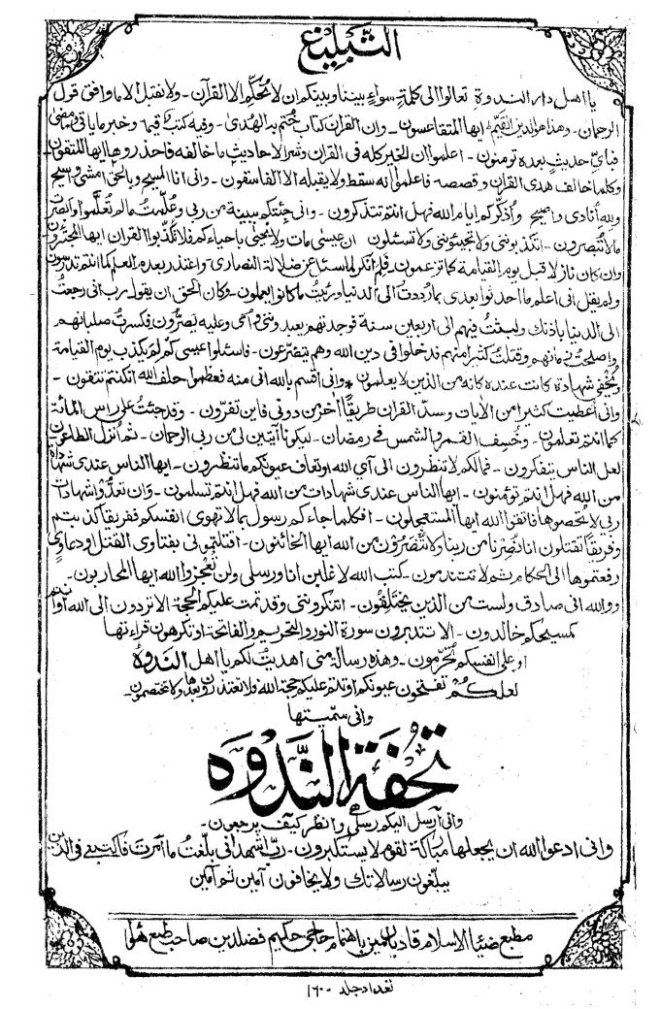 التبليغ
يا اهل دار الندوة تعالوا الى كلمة سواء بيننا وبينكم ان لا نُحكّم الا القرآن - ولا نقبل الا ما وافق قول
الرحمان - وهذا هو الدين القيّم ايها المتقاعسون - وان القرآن كتاب خُتم به الهُدى - وفيه كتبٌ قيمة وخبر ما ياتي وما مضى
فبايّ حديثٍ بعده تومنون - اعلموا ان الخير كله فى القرآن وشر الاحاديث ما خالفه فاحذروها ايها المتقون -
وكلما خالف هدى القرآن وقصصه فاعلموا انه سقط ولا يقبله الا الفاسقون - وانى انا المسيح وبالحق امشى واسيح
ولله اُنادى واصيح واُذكّركم ايام الله فهل انتم تتذكرون - وانى جئتكم ببينة من ربى وعُلّمتُ مالم تُعلّموا واُبصرتُ
مالا تُبصرون - اتكذبوننى ولا تجيئوننى ولا تسئلون - ان عيسى مات ولا يُحيى باحياءكم فلا تكذبوا القرآن ايها المجترءون
وان كان نازلا قبل يوم القيامة كما تزعمون - فلِمَ انكر لما سئل عن ضلالة النصارى - واعتذر بعدم العلم كما انتم تدرسون
ولم يقل انى اعلم ما احدثوا بعدى بما رُددتُ الى الدنيا ورئيتُ ما كانوا يعملون - وكان الحق ان يقول رب انى رجعتُ
الى الدنيا باذنك ولبثتُ فيهم الى اربعين سنة فوجدتهم يعبدوننى وامّى وعليه يُصرّون فكسرتُ صلبانهم
واصلحتُ زمانهم وقتلتُ كثيرا منهم فدخلوا فى دين الله وهم يتضرّعون - فاسئلوا عيسى كم لِمَ يكذب يوم القيامة
ويُخفى شهادة كانت عنده كانه من الذين لا يعلمون - وانى اقسم بالله انى منه فعظموا حلف الله ان كنتم تتقون -
وانى اُعطيت كثيرا من الايات وسدّ القرآن طريقًا آخر من دونى فاين تفرّون - وقد جئتُ على راس المائة
كما انتم تعلمون - وخُسِف القمر والشمس فى رمضان - ليكونا آيتين لى من ربى الرحمان - ثم اُنزل الطاعون
لعل الناس يتفكرون - فمالكم لا تنظرون الى آي الله او تعاف عيونكم ما تنظرون - ايها الناس عندى شهادات
من الله فهل انتم تؤمنون - ايها الناس عندى شهادات من الله فهل انتم تسلمون - وان تعدّوا شهادات
ربى لا تُحصوها فاتقوا الله ايها المستعجلون - افكلما جاءكم رسول بما لا تهوى انفسكم ففريقا كذبتم
وفريقًا تقتلون انا نُصِرْنا من ربنا ولا تُنصَرُون من الله ايها الخائنون - اقتلتمونى بفتاوى القتل او دعاوى
رفعتموها الى الحكام ثم لا تتندمون - كتب الله لاغلبن انا ورسلى ولن تُعجزوا الله ايها المحاربون -
ووالله انى صادق ولست من الذين يختلقون - اتنكروننى وقد تمت عليكم الحجة الا تردون الى الله او انتم
كمسيحكم خالدون - الا تتدبرون سورة النور والتحريم والفاتحة او تكرهون قراءتها
او على انفسكم تُحرّمون - وهذه رسالة منى اهديتُ لكم يا اهل الندوة
لعلكم تفتحون عيونكم او تتم عليكم حجة الله فلا تعتذرون بعدها ولا تختصمون -
وانى سمّيتها
تحفة الندوه
وانى اُرسل اليكم رسلى وانظر كيف يرجعون -
وانى ادعوا الله ان يجعلها مباركة لقوم لا يستكبرون - ربّ اشهد انى بلّغتُ ما امرتَ فاكتبنى فى الذين
يبلّغون رسالاتك ولا يخافون آمين ثم آمين
مطبع ضياء الاسلام قاديان میں باہتمام حاجی حکیم فضلدین صاحب طبع ہوا
تعداد جلد ۱۶۰۰